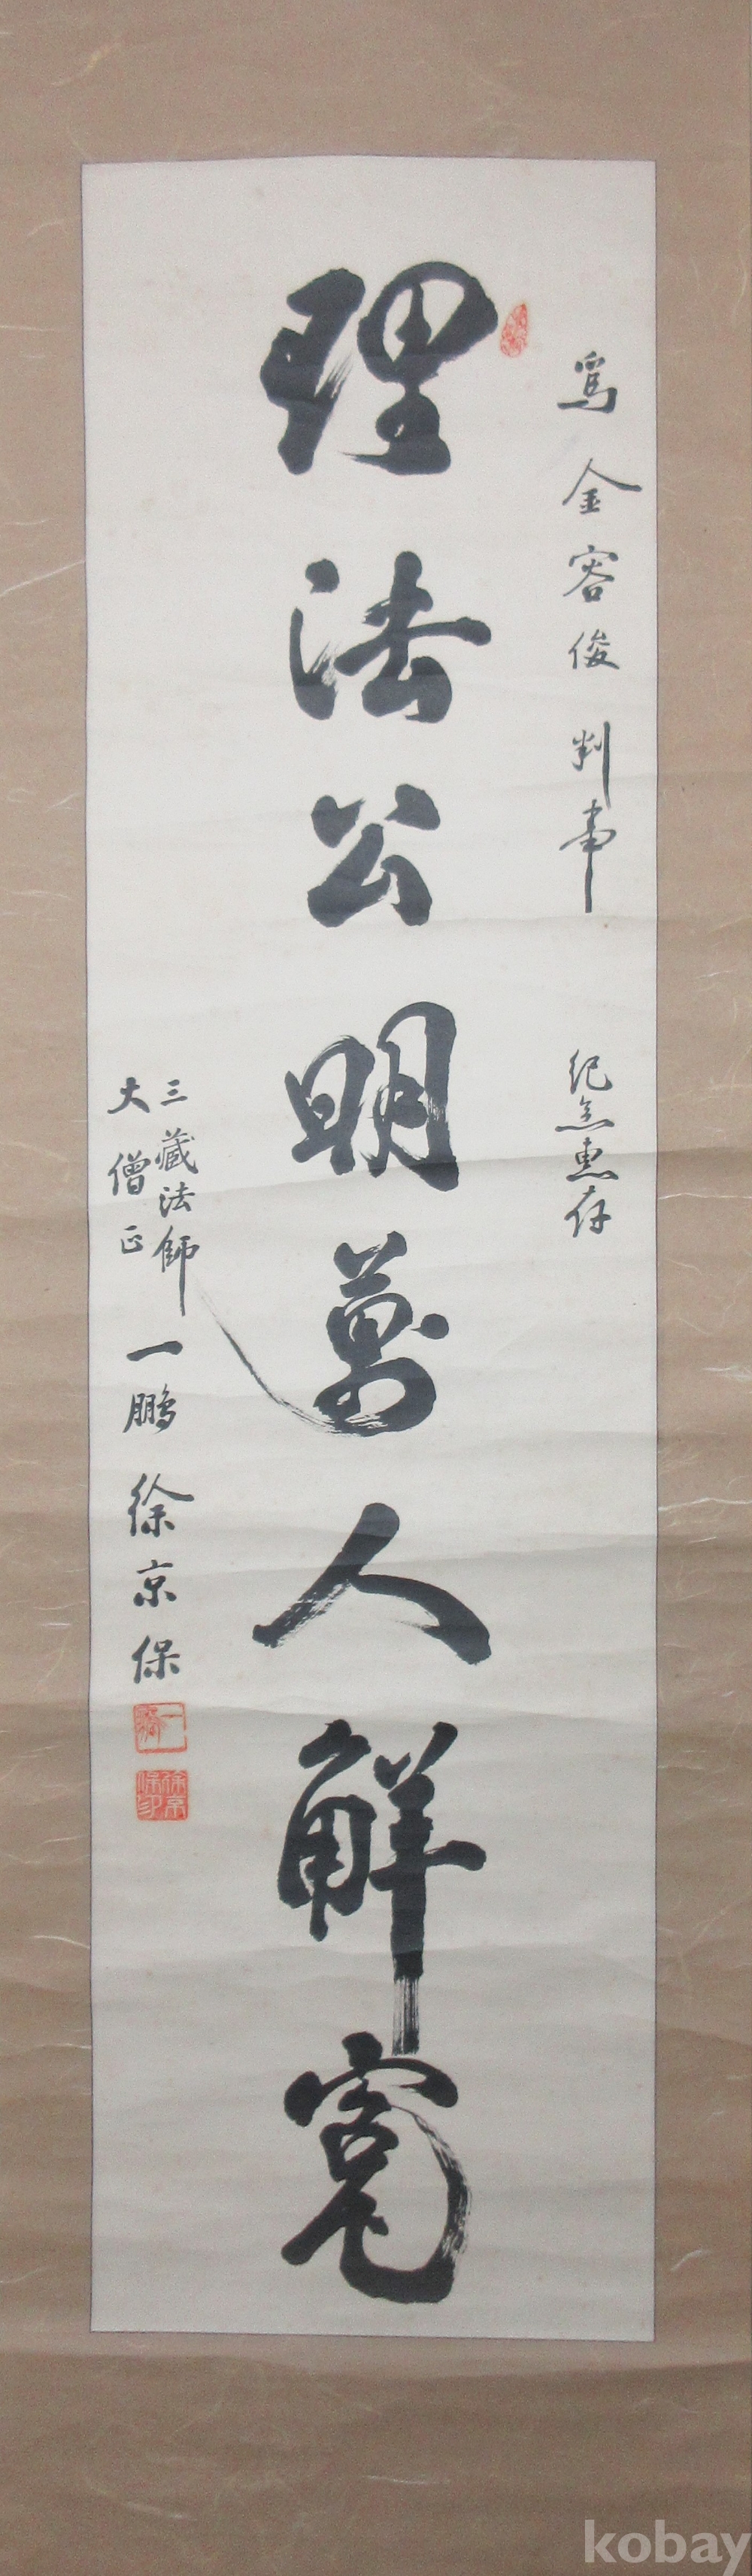 爲金容俊判事 紀念惠存
理法公明萬人解冤
三藏法師
大僧正
一鵬 徐京保
一鵬
徐京保印
kobay